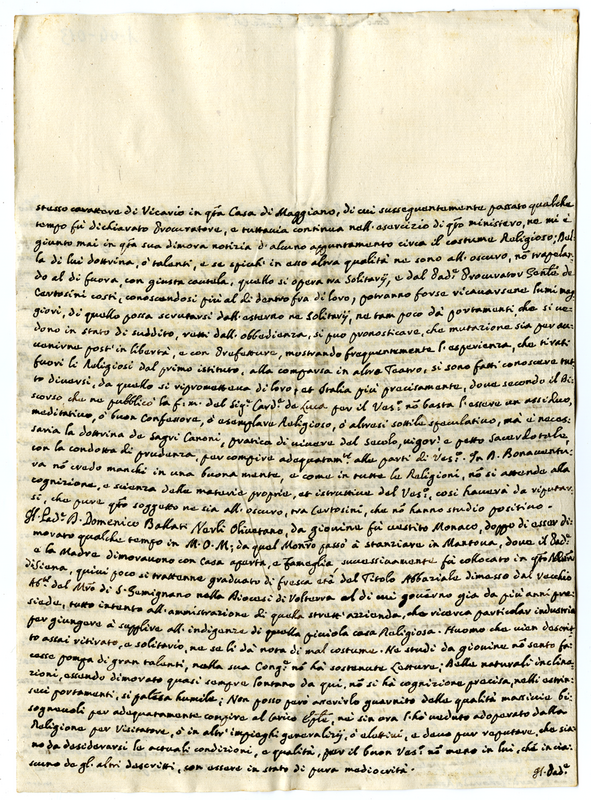 stesso carattere di Vicario in q̃ta Casa di Maggiano, di cui susseguentemente passato qualche
tempo fù dichiarato Procuratore, e tuttavia continua nell'esercizio di q̃to ministero, ne mi è
giunto mai in q̃ta sua dimora notizia d'alcuno appuntamento circa il costume Religioso; Del-
la di lui dottrina, ò talenti, e se spicchi in esso altra qualità ne sono all'oscuro, nõ trapelan
do al di fuora, con giusta cautela, quello si opera tra Solitarij, e dal Pad.e Procurator de
Certosini costì, conoscendosi più al di dentro fra di loro, potranno forse ricavarsene lumi mag
giori, di quello possa scrutarsi dall'esterno ne Solitarij, ne tam poco da portamenti che si ve-
dono in stato di suddito, retti dall'obbedienza, si può pronosticare, che mutazione sia per av-
venirne post' in libertà, e con Prefetture, mostrando frequentemente l'esperienza, che tirati
fuori li Religiosi dal primo istituto, alla comparsa in altro Teatro, si sono fatti conoscere tut
to diversi, da quello si ripromettevа di loro; et Italia più precisamente, dove secondo il Di-
scorso che ne pubblicò la f: m: del Sig.r Card.e de Luca per il Ves.o nõ basta l'essere un assiduo,
meditativo, ò buon Confessore, ò esemplare Religioso, ò altresi sottile speculativo, mà è neces-
saria la dottrina de Sagri Canoni, pratica di vivere del secolo, vigore e petto Sacerdotale,
con la condotta di prudenza, per compire adequatam.te alle parti di Ves.o In D. Bonaventu-
ra nõ credo manchi in una buona mente, e come in tutte le Religioni, nõ si attende alla
cognizione, e scienza delle materie proprie, et istruttive del Ves.o, cosi haverà da riputar-
si, che pure q̃to soggetto ne sia all'oscuro, tra Certosini, che nõ hanno studio positivo.
Il Pad.e D. Domenico Ballati Nerli Olivetano, da giovine fù vestito Monaco, doppo di esser di-
morato qualche tempo in M. O. M; da quel Mon.ro passò à stanziare in Mantova, dove il Pad.e
e la Madre dimoravono con Casa aperta, e famiglia successivamente fù collocato in q̃to
di Siena, quivi poco si trattenne graduato di fresca età del Titolo Abbaziale dimesso dal vecchio
Ab.e del M.ro di S. Gemignano nella Diocesi di Volterra al di cui governo già da più anni pre-
siede, tutto intento all'amministrazione di quella strett' azzienda, che ricerca particolar industria
per giungere à supplire all'indigenze di quella piccola casa Religiosa. Huomo che vien descrit
to assai ritirato, e solitario, ne se li dà nota di mal costume. Ne studi da giovine nõ sento fa-
cesse pompa di gran talenti, nella sua Cong.e nõ hà sostenute Letture; Delle naturali inclina-
zioni, essendo dimorato quasi sempre lontano da qui, nõ si hà cognizione precisa, nelli estrin-
seci portamenti, si palesa humile; Non posso però asserirlo guarnito delle qualità massicce bi-
sognevoli per adequatamente compire al Carico Ep̃le, ne sin ora l'hò veduto adoperato dalla
Religione per Visitatore, ò in altr' impieghi generalizij, ò elettivi, e devo pur reputare, che sia-
no da desiderarsi le attuali condizioni, e qualità, per il buon Ves.o nõ meno in lui, che in cia-
scuno de gl'altri descritti, con essere in stato di pura mediocrità.
Il Pad.e